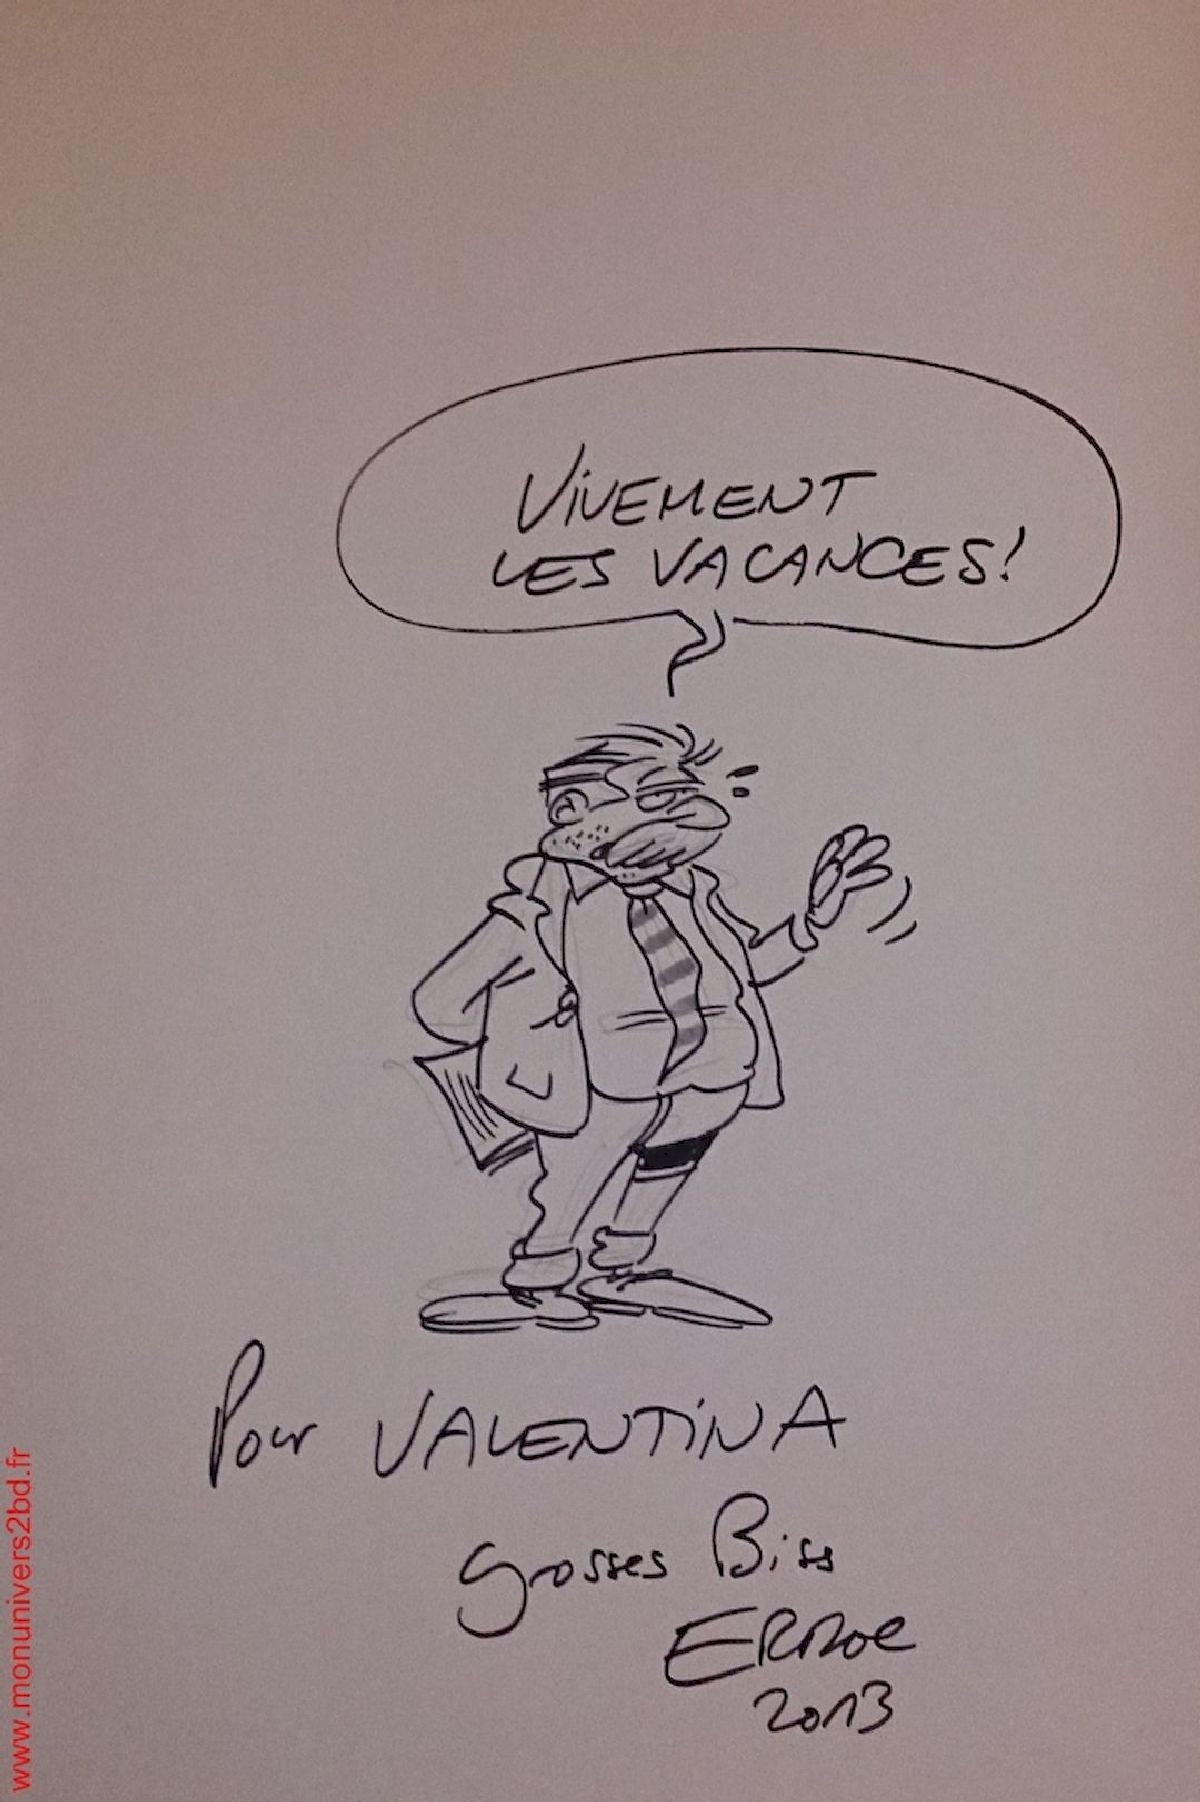 VIVEMENT
LES VACANCES!
Pour VALENTINA
grosses Biss
ERROC
2013
www.monunivers2bd.fr